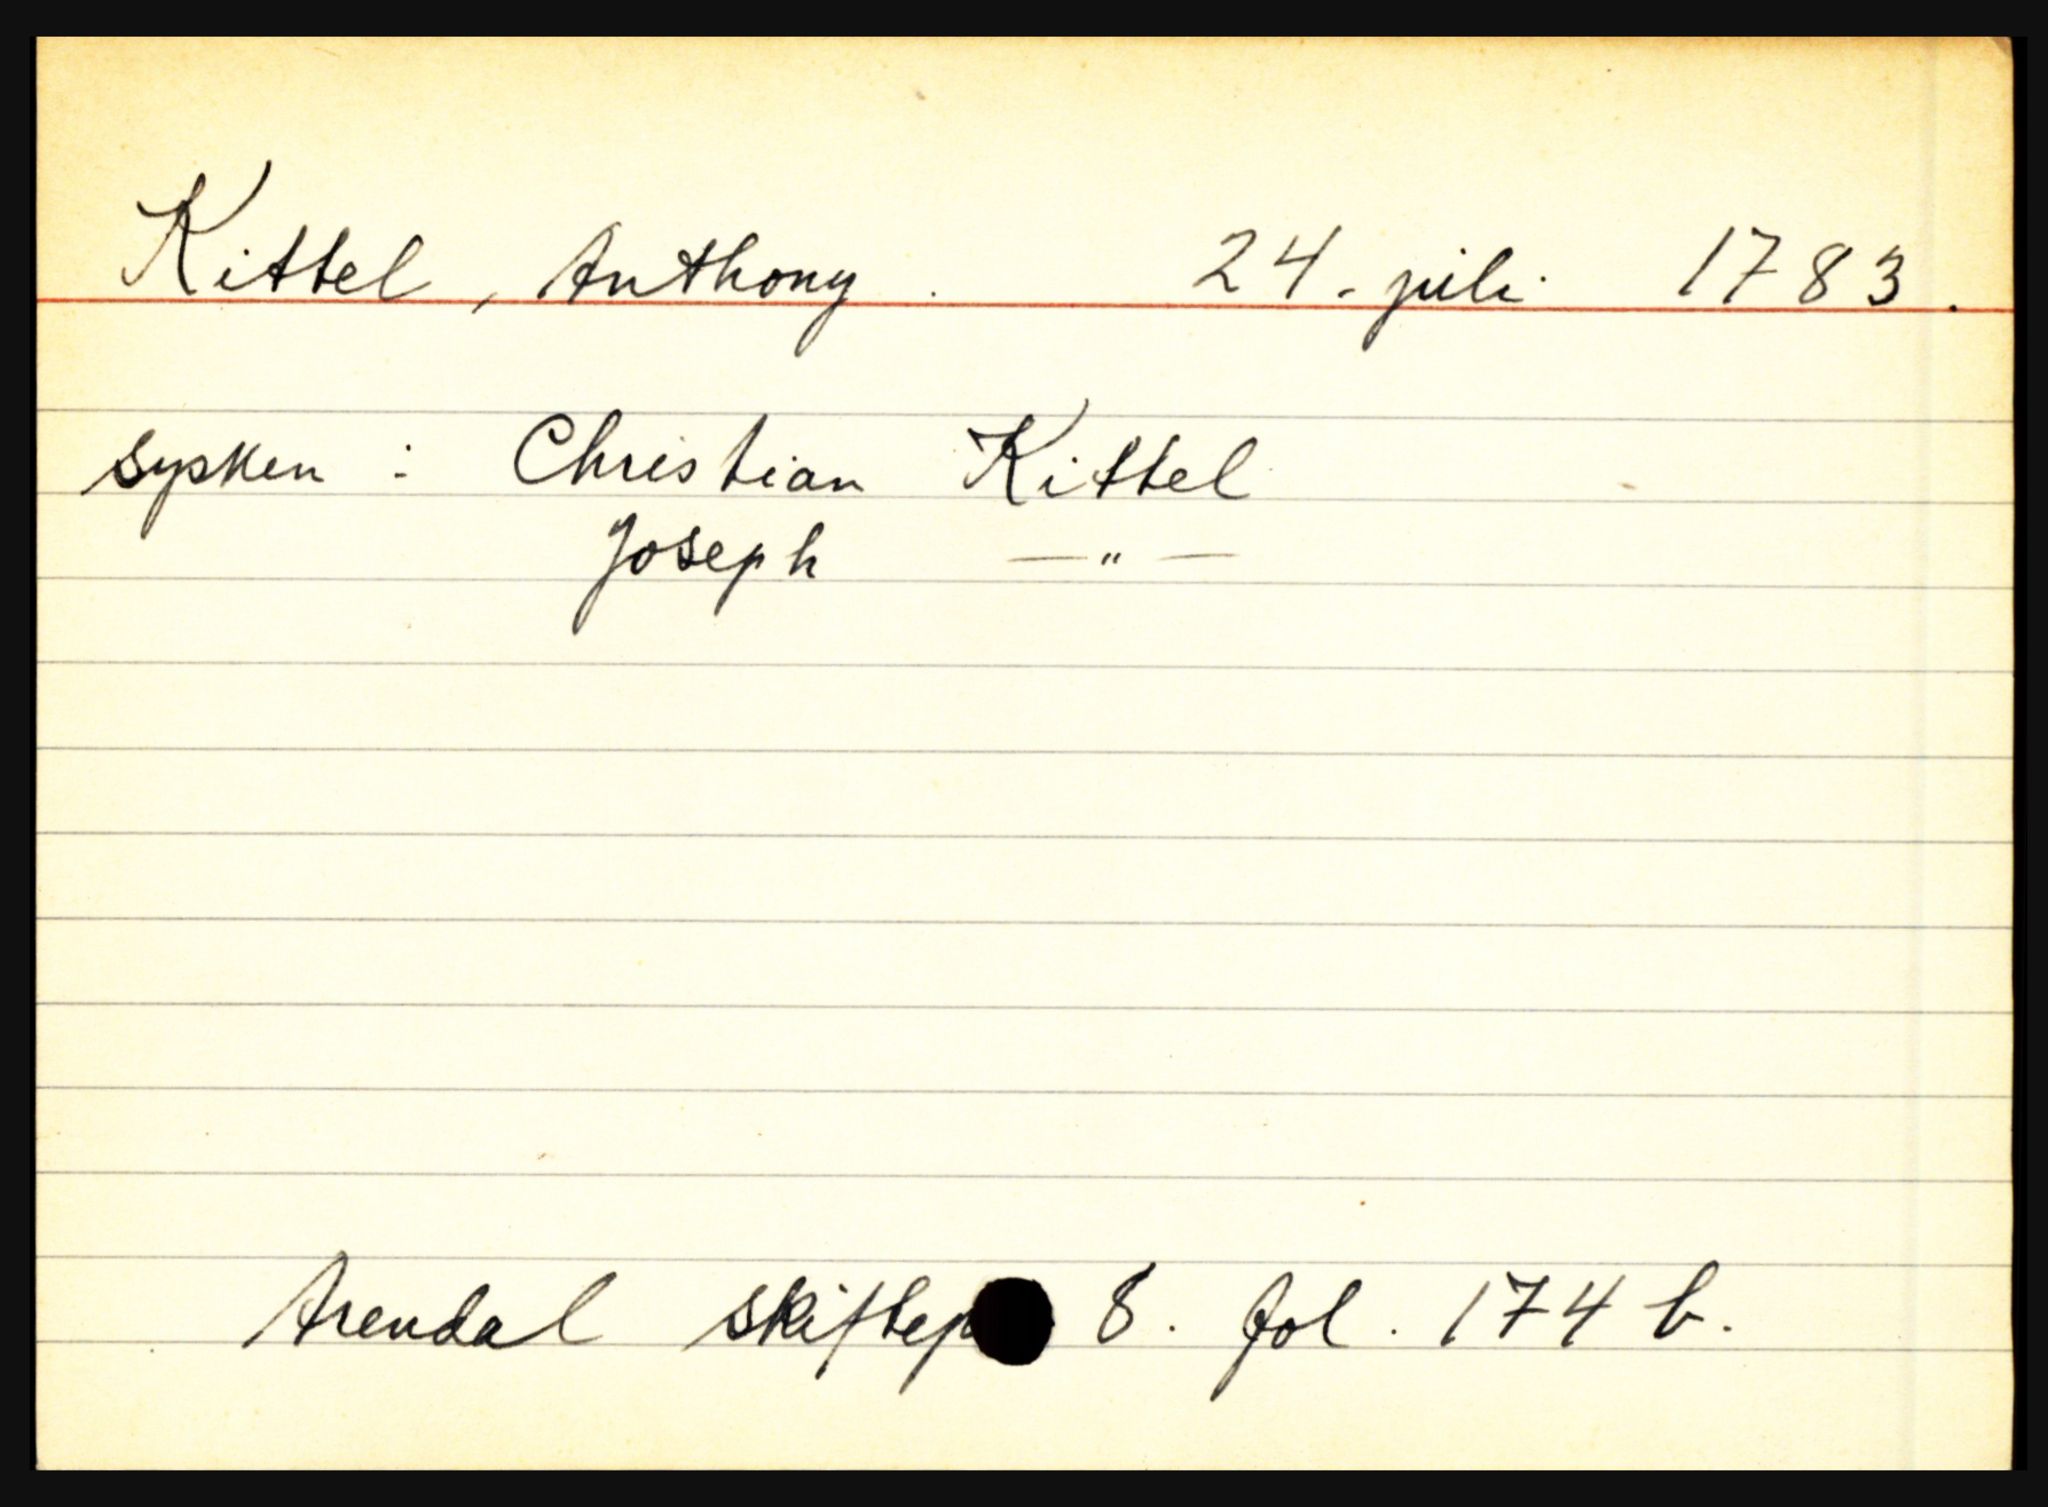 Kittel, Anthony. 24. juli 1783.
sysken: Christian Kittel
Joseph —"—
Arendal skiftep 8. fol. 174 b.